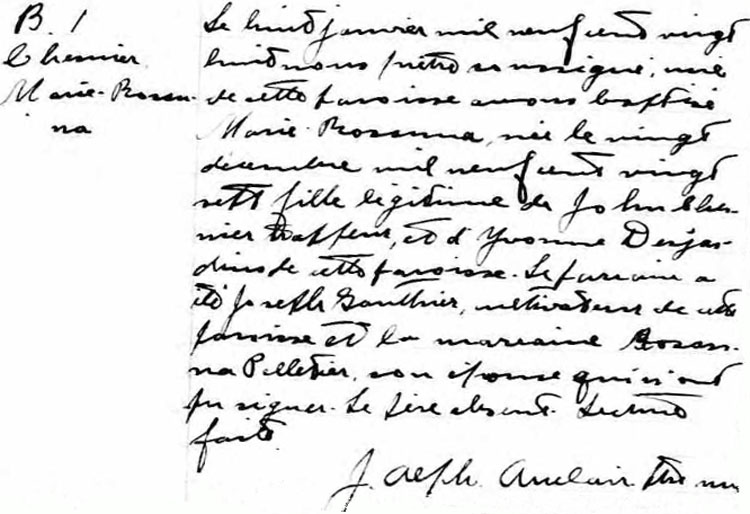 B. 1
Chernier
Marie-Rosan-
na
Le huit janvier mil neuf cent vingt
huit nous prêtre soussigné, curé
de cette paroisse avons baptisé
Marie-Rossanna, née le vingt
décembre mil neuf cent vingt
sept fille légitime de John Cher-
nier trappeur, et d'Yvonne Desjar-
dins de cette paroisse. Le parrain a
été Joseph Gauthier, cultivateur de cette
paroisse et la marraine Rosan-
na Pelletier, son épouse qui n'ont
pu signer. Le père absent. Lecture
faite.
J. Alph. Auclair ptre